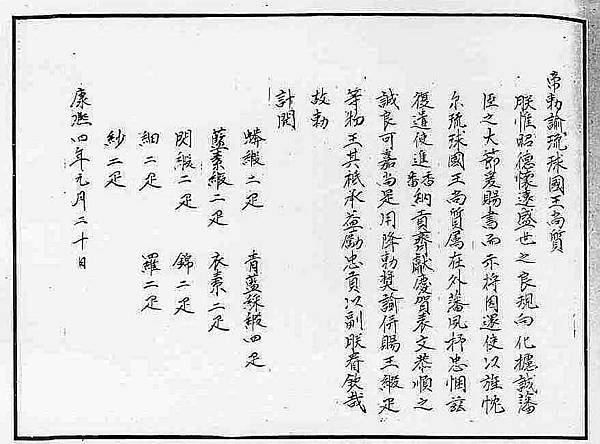 帝勅諭琉球國王尚質
朕惟昭德懷遠盛世之良規向化攄誠藩
臣之大節爰賜書而示将因還使以旌忱
尔琉球國王尚質属在外藩夙抒忠悃玆
復遣使進香納貢齎獻慶賀表文恭順之
誠良可嘉尚是用降勅奬諭併賜王緞疋
等物王其祇承益勵忠貢以副朕眷欽哉
故勅
計開
蟒緞二疋 青藍綵緞四疋
藍素緞二疋 衣素二疋
閃緞二疋 錦二疋
紬二疋 羅二疋
紗二疋
康熙四年元月二十日